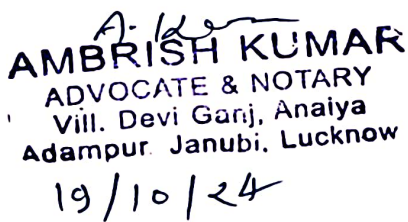 AMBRISH KUMAR
ADVOCATE & NOTARY
Vill. Devi Ganj, Anaiya
Adampur Janubi, Lucknow
19/10/24